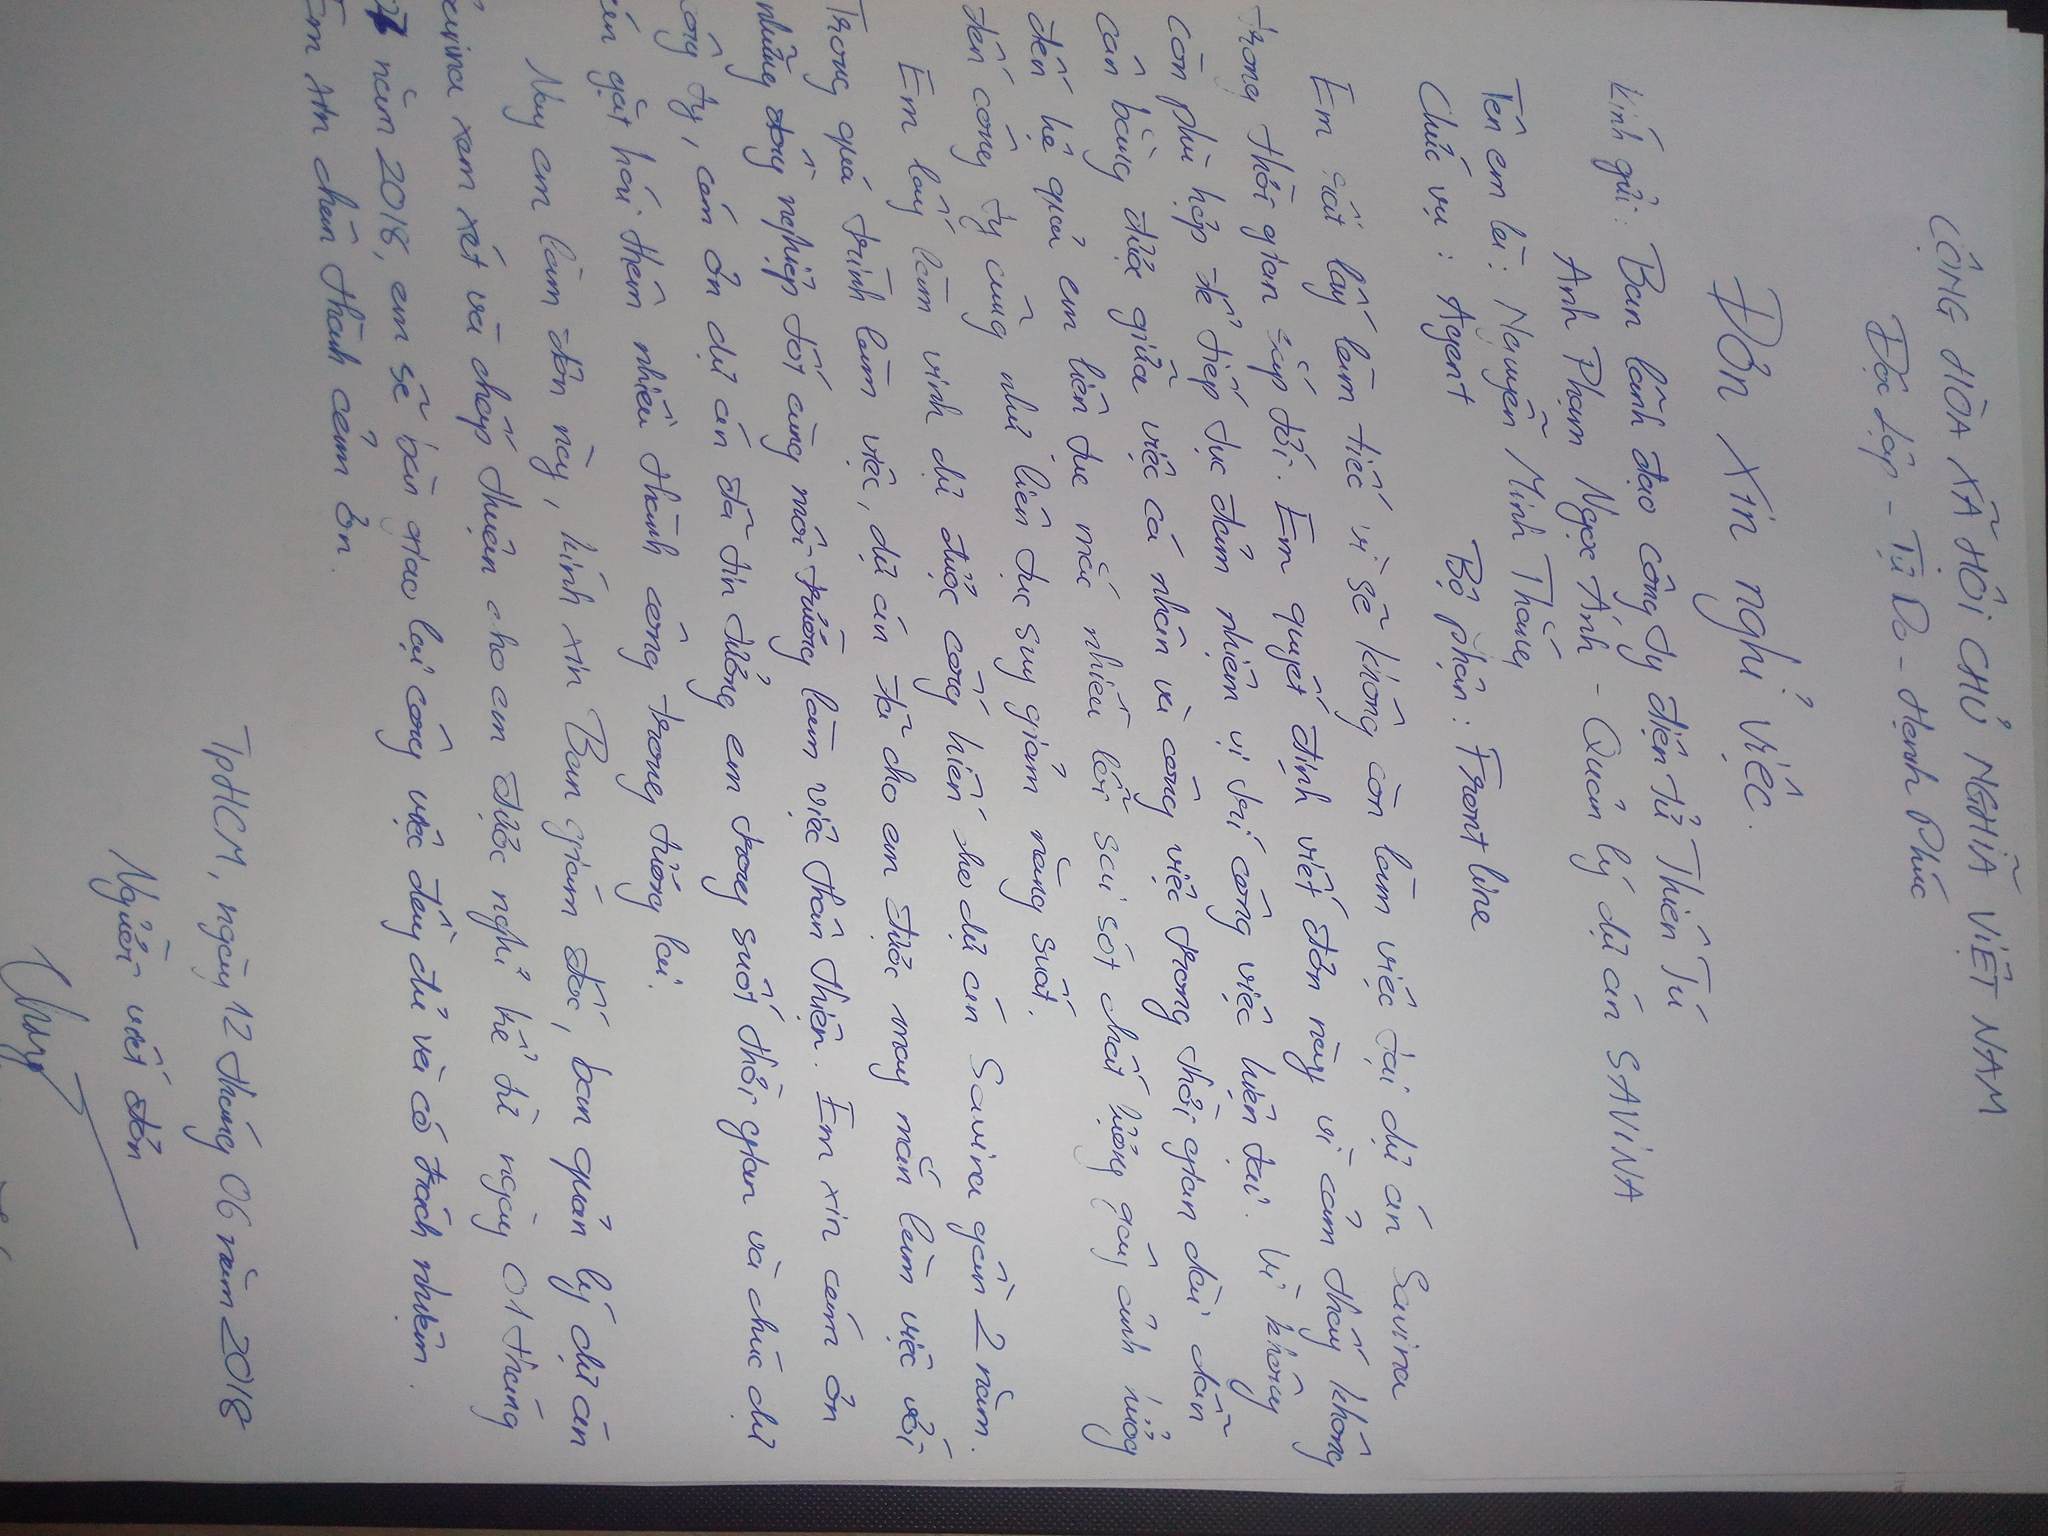 CỘNG HÒA XÃ HỘI CHỦ NGHĨA VIỆT NAM
Độc Lập - Tự Do - Hạnh Phúc
Đơn xin nghỉ việc.
Kính gửi: Ban lãnh đạo công ty điện tử Thiên Tú
Anh Phạm Ngọc Ánh - Quản lý dự án SAVINA
Tên em là: Nguyễn Minh Thắng
Chức vụ: Agent Bộ phận: Front line
Em rất lấy làm tiếc vì sẽ không còn làm việc tại dự án Savina
trong thời gian sắp tới. Em quyết định viết đơn này vì cảm thấy không
còn phù hợp để tiếp tục đảm nhiệm vị trí công việc hiện tại. Vì không
cân bằng được giữa việc cá nhân và công việc trong thời gian dài dẫn
đến hệ quả em liên tục mắc nhiều lỗi sai sót chất lượng gây ảnh hưởng
đến công ty cũng như liên tục suy giảm năng suất.
Em lấy làm vinh dự được cống hiến cho dự án Savina gần 2 năm.
Trong quá trình làm việc, dự án đã cho em được may mắn làm việc với
những đồng nghiệp tốt cùng môi trường làm việc thân thiện. Em xin cám ơn
công ty, cám ơn dự án đã tin tưởng em trong suốt thời gian và chúc dự
án gặt hái thêm nhiều thành công trong tương lai.
Nay em làm đơn này, kính xin Ban giám đốc, ban quản lý dự án
Savina xem xét và chấp thuận cho em được nghỉ kể từ ngày 01 tháng
năm 2018, em sẽ bàn giao lại công việc đầy đủ và có trách nhiệm.
Em xin chân thành cảm ơn.
TpHCM, ngày 12 tháng 06 năm 2018
Người viết đơn